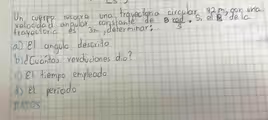 Un cuerpo recorre una trayectoria circular 82m, con una
velocidad angular constante de 8 rad/s. Si, el R de la
trayectoria es 3m, determinar:
a) El angulo descrito
b) ¿Cuántas revoluciones dio?
c) El tiempo empleado
d) El periodo